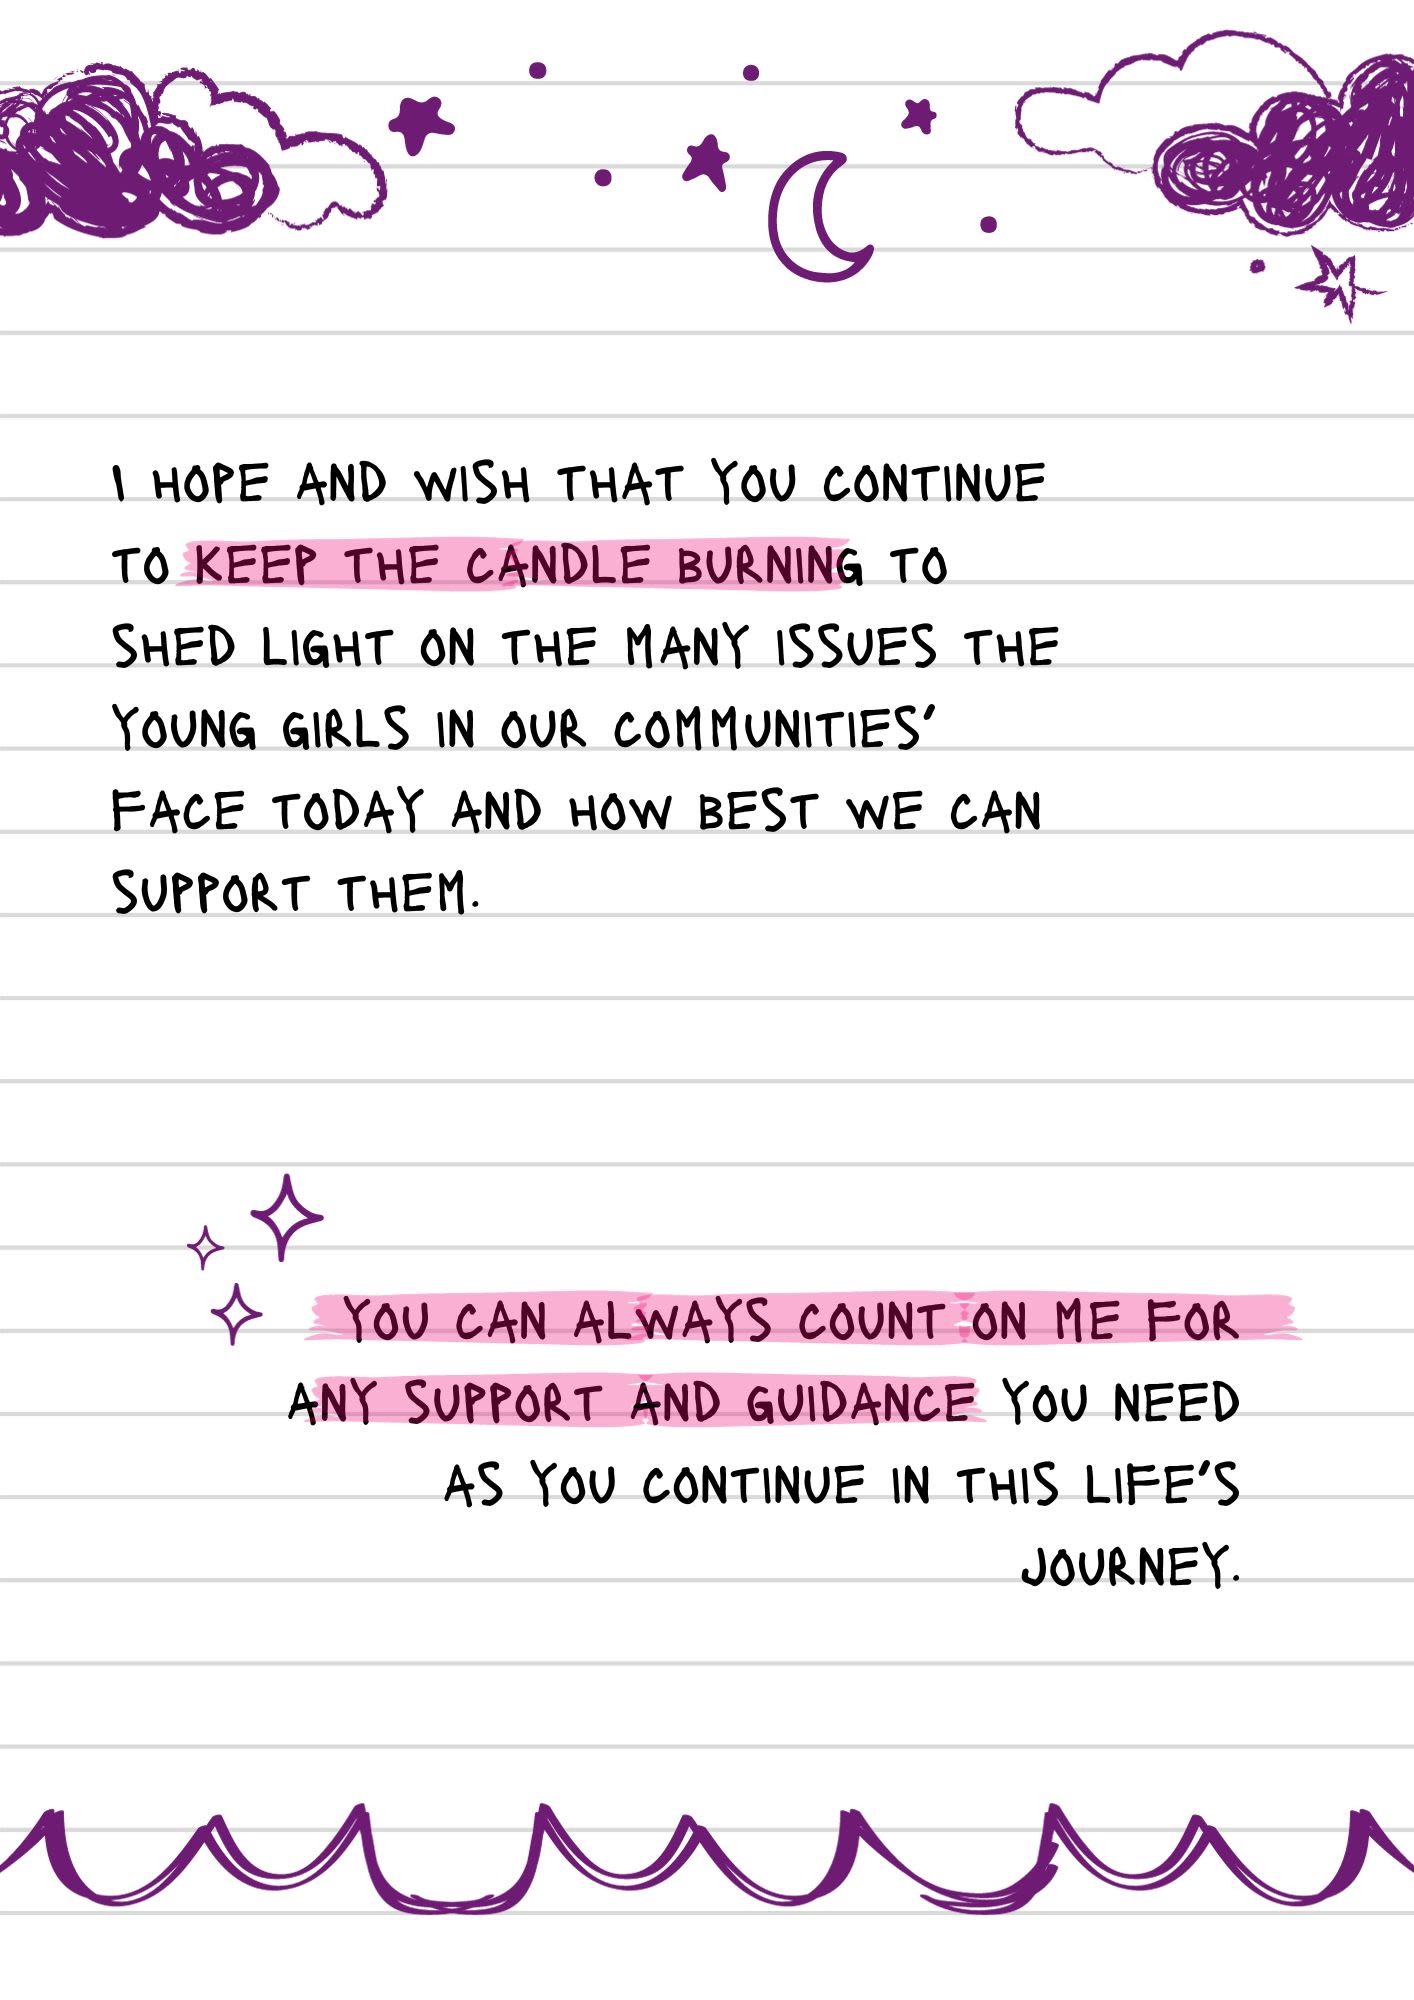 I HOPE AND WISH THAT YOU CONTINUE
TO KEEP THE CANDLE BURNING TO
SHED LIGHT ON THE MANY ISSUES THE
YOUNG GIRLS IN OUR COMMUNITIES’
FACE TODAY AND HOW BEST WE CAN
SUPPORT THEM.
YOU CAN ALWAYS COUNT ON ME FOR
ANY SUPPORT AND GUIDANCE YOU NEED
AS YOU CONTINUE IN THIS LIFE’S
JOURNEY.